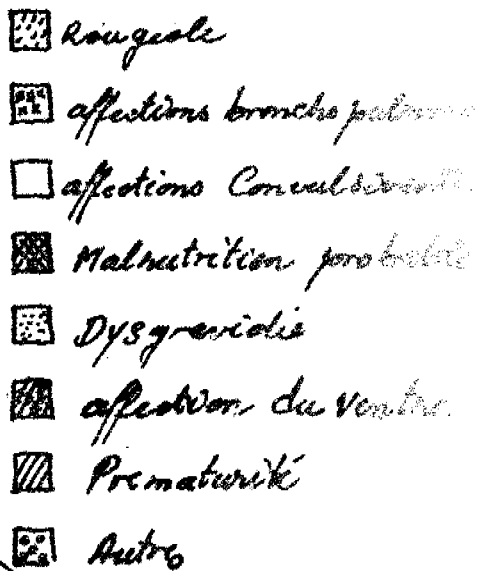 Rougeole
affections broncho
affections
Malnutrition probable
Dysgravidie
affection du ventre
Prematurité
Autre